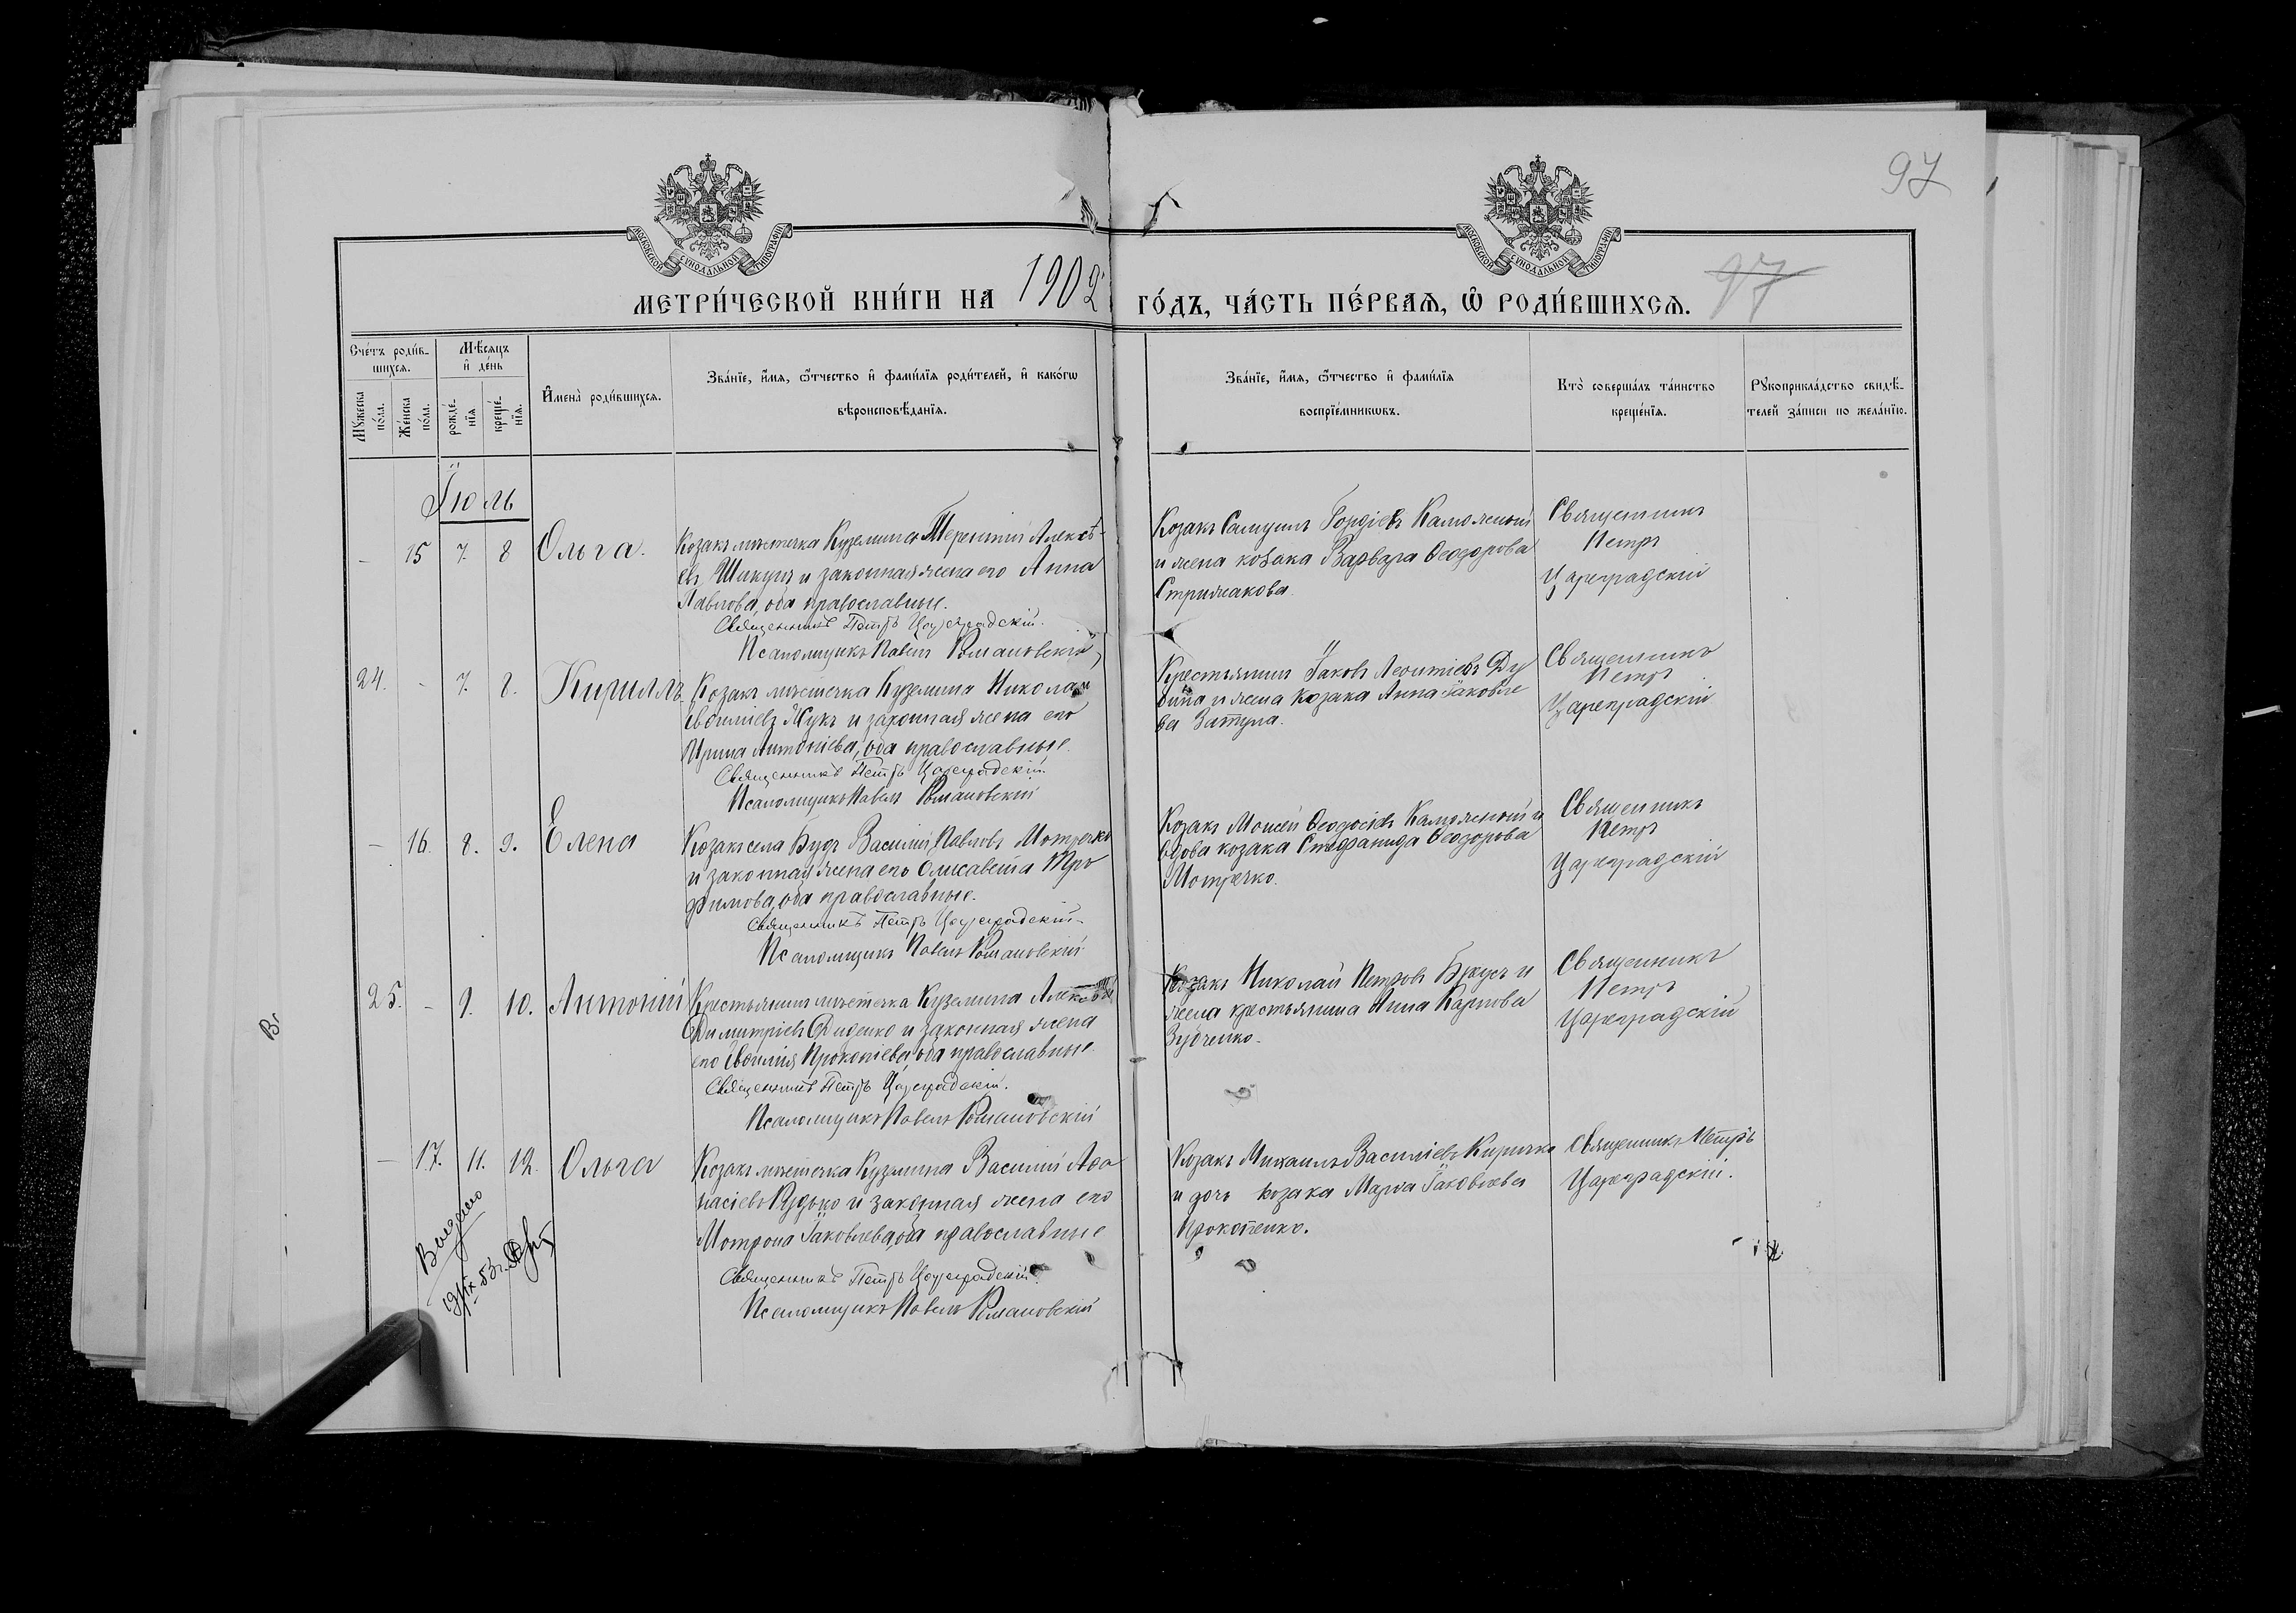 97
МОСКОВСКОЙ СѴНОДАЛЬНОЙ ТИПОГРАФІИ
МОСКОВСКОЙ СѴНОДАЛЬНОЙ ТИПОГРАФІИ
МЕТРИ́ЧЕСКОЙ КНИ́ГИ НА 1902 ГО́ДЪ, ЧА́СТЬ ПЕ́РВАѦ, Ѽ РОДИ́ВШИХСѦ. 97
Сче́тъ роди́в-
шихсѧ.
Мѣ́сѧцъ
и҆ де́нь
Мꙋ́жеска
по́ла.
Же́нска
по́ла.
рожде́-
нїѧ
креще́-
нїѧ.
И҆мена̀ роди́вшихсѧ.
Зва́нїе, и҆́мѧ, ѻ҆́тчество и҆ фами́лїѧ роди́телей, и҆ како́гѡ
вѣроисповѣ́данїѧ.
Зва́нїе, и҆́мѧ, ѻ҆́тчество и҆ фами́лїѧ
воспрїе́мникѡвъ.
Кто̀ соверша́лъ та́инство
креще́нїѧ.
Рꙋкоприкла́дство свидѣ́-
телей за́писи по жела́нїю.
Іюль
- 15 7. 8 Ольга.
Козакъ мѣстечка Куземина Терентій Алексѣ-
евъ Шикунъ и законная жена его Анна
Павлова, оба православные.
Священникъ Петръ Цареградскій.
Псаломщикъ Павелъ Романовскій
Козакъ Самуилъ Гордіевъ Каможный
и жена козака Варвара Ѳеодорова
Стрижакова.
Священникъ
Петръ
Цареградскій
24. - 7. 8. Кириллъ
Козакъ мѣстечка Куземина Николай
Евфиміевъ Жукъ и законная жена его
Ирина Антоніева, оба православные.
Священникъ Петръ Цареградскій.
Псаломщикъ Павелъ Романовскій
Крестьянинъ Іаковъ Леонтіевъ Ду
бина и жена козака Анна Іаковле
ва Затула.
Священникъ
Петръ
Цареградскій
- 16. 8. 9. Елена
Козакъ села Будъ Василій Павловъ Мотречко
и законная жена его Елисавета Тро
фимова, оба православные.
Священникъ Петръ Цареградскій.
Псаломщикъ Павелъ Романовскій
Козакъ Моисей Ѳеодосіевъ Каможный и
вдова козака Стефанида Ѳеодорова
Мотречко.
Священникъ
Петръ
Цареградскій
25. - 9. 10. Антоній
Крестьянинъ мѣстечка Куземина Алексѣй
Димитріевъ Диденко и законная жена
его Евфимія Прокопіева, оба православные
Священникъ Петръ Цареградскій.
Псаломщикъ Павелъ Романовскій
Козакъ Николай Петровъ Букусъ и
жена крестьянина Анна Карпова
Зубченко.
Священникъ
Петръ
Цареградскій
- 17. 11. 12. Ольга
Козакъ мѣстечка Куземина Василій Аѳа
насіевъ Рудько и законная жена его
Мотрона Іаковлева, оба православные
Священникъ Петръ Цареградскій.
Псаломщикъ Павелъ Романовскій
Козакъ Михаилъ Василіевъ Киричко
и дочь козака Марѳа Іаковлева
Прокопенко.
Священникъ Петръ
Цареградскій.
Выдано
19/IX-53 г.
Вг